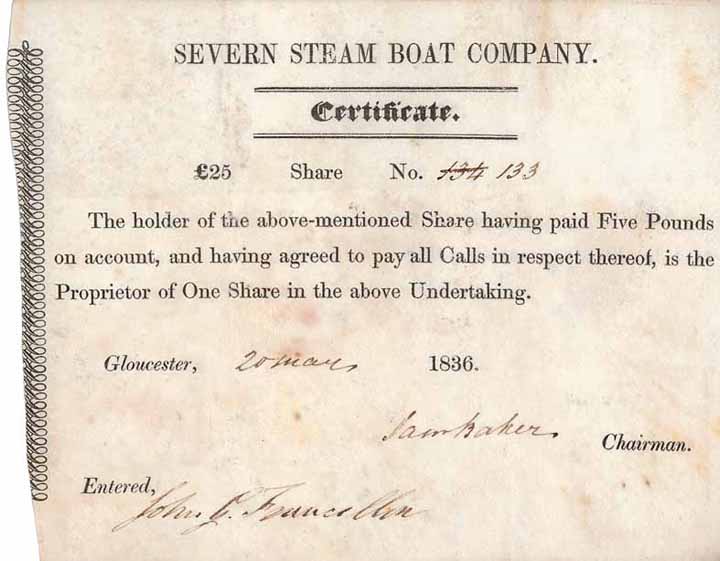 SEVERN STEAM BOAT COMPANY.
Certificate.
£25 Share No. 134 133
The holder of the above-mentioned Share having paid Five Pounds
on account, and having agreed to pay all Calls in respect thereof, is the
Proprietor of One Share in the above Undertaking.
Gloucester, 20 May 1836.
Saml Baker Chairman.
Entered,
John G. Francillon